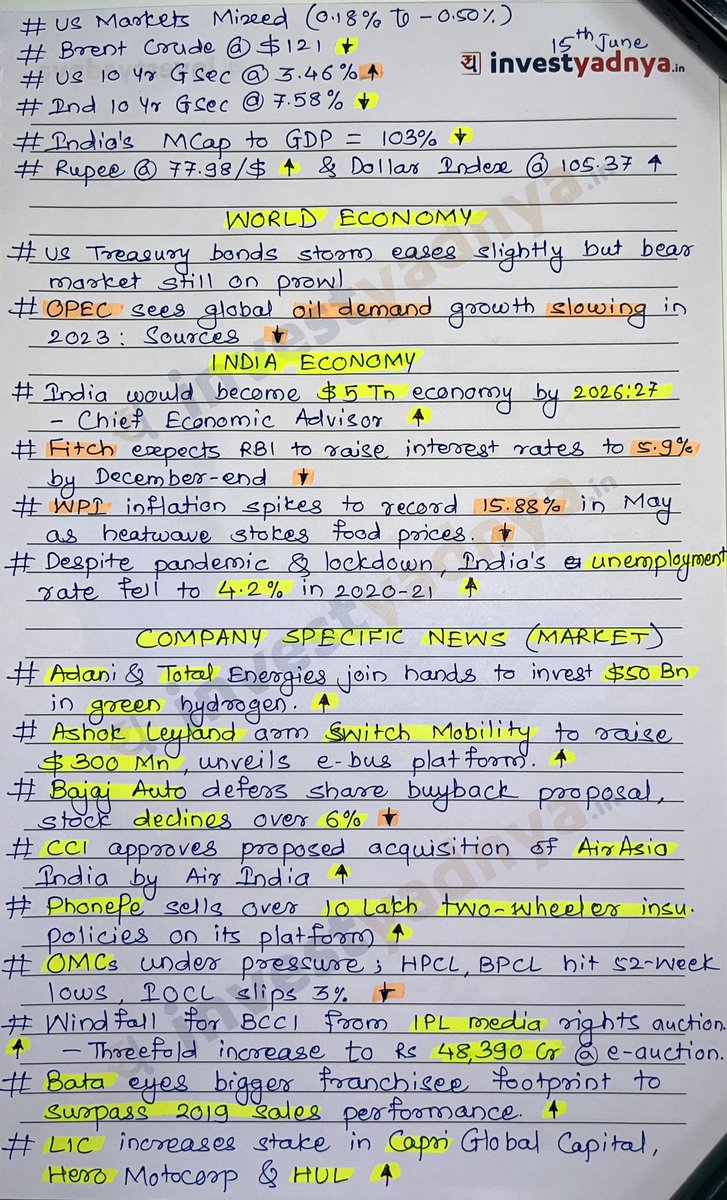 # US Markets Mixed (0.18% to -0.50%)
15th June
# Brent Crude @ $121 ↓
यज्ञ investyadnya.in
# US 10 Yr GSec @ 3.46% ↑
# Ind 10 Yr GSec @ 7.58% ↓
# India's MCap to GDP = 103% ↓
# Rupee @ 77.98/$ ↑ & Dollar Index @ 105.37 ↑
WORLD ECONOMY
# US Treasury bonds storm eases slightly but bear
market still on prowl
# OPEC sees global oil demand growth slowing in
2023: Sources ↓
INDIA ECONOMY
# India would become $5 Tn economy by 2026:27
- Chief Economic Advisor ↑
# Fitch exepects RBI to raise interest rates to 5.9%
by December-end ↓
# WPI inflation spikes to record 15.88% in May
as heatwave stokes food prices. ↓
# Despite pandemic & lockdown, India's unemployment
rate fell to 4.2% in 2020-21 ↑
COMPANY SPECIFIC NEWS (MARKET)
# Adani & Total Energies join hands to invest $50 Bn
in green hydrogen. ↑
# Ashok Leyland arm Switch Mobility to raise
$300 Mn, unveils e-bus platform. ↑
# Bajaj Auto defers share buyback proposal,
stock declines over 6% ↓
# CCI approves proposed acquisition of AirAsia
India by Air India ↑
# PhonePe sells over 10 Lakh two-wheeler insu.
policies on its platform ↑
# OMCs under pressure; HPCL, BPCL hit 52-week
lows, IOCL slips 3% ↓
# Windfall for BCCI from IPL media rights auction.
↑ - Threefold increase to Rs 48,390 Cr @ e-auction.
# Bata eyes bigger franchisee footprint to
surpass 2019 sales performance. ↑
# LIC increases stake in Capri Global Capital,
Hero Motocorp & HUL ↑